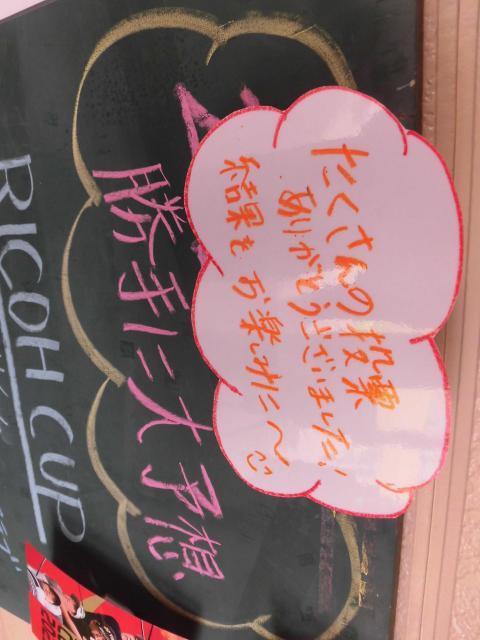 たくさんの投票
ありがとうございました!!
結果もお楽しみに〜
勝手に大予想
RICOH CUP